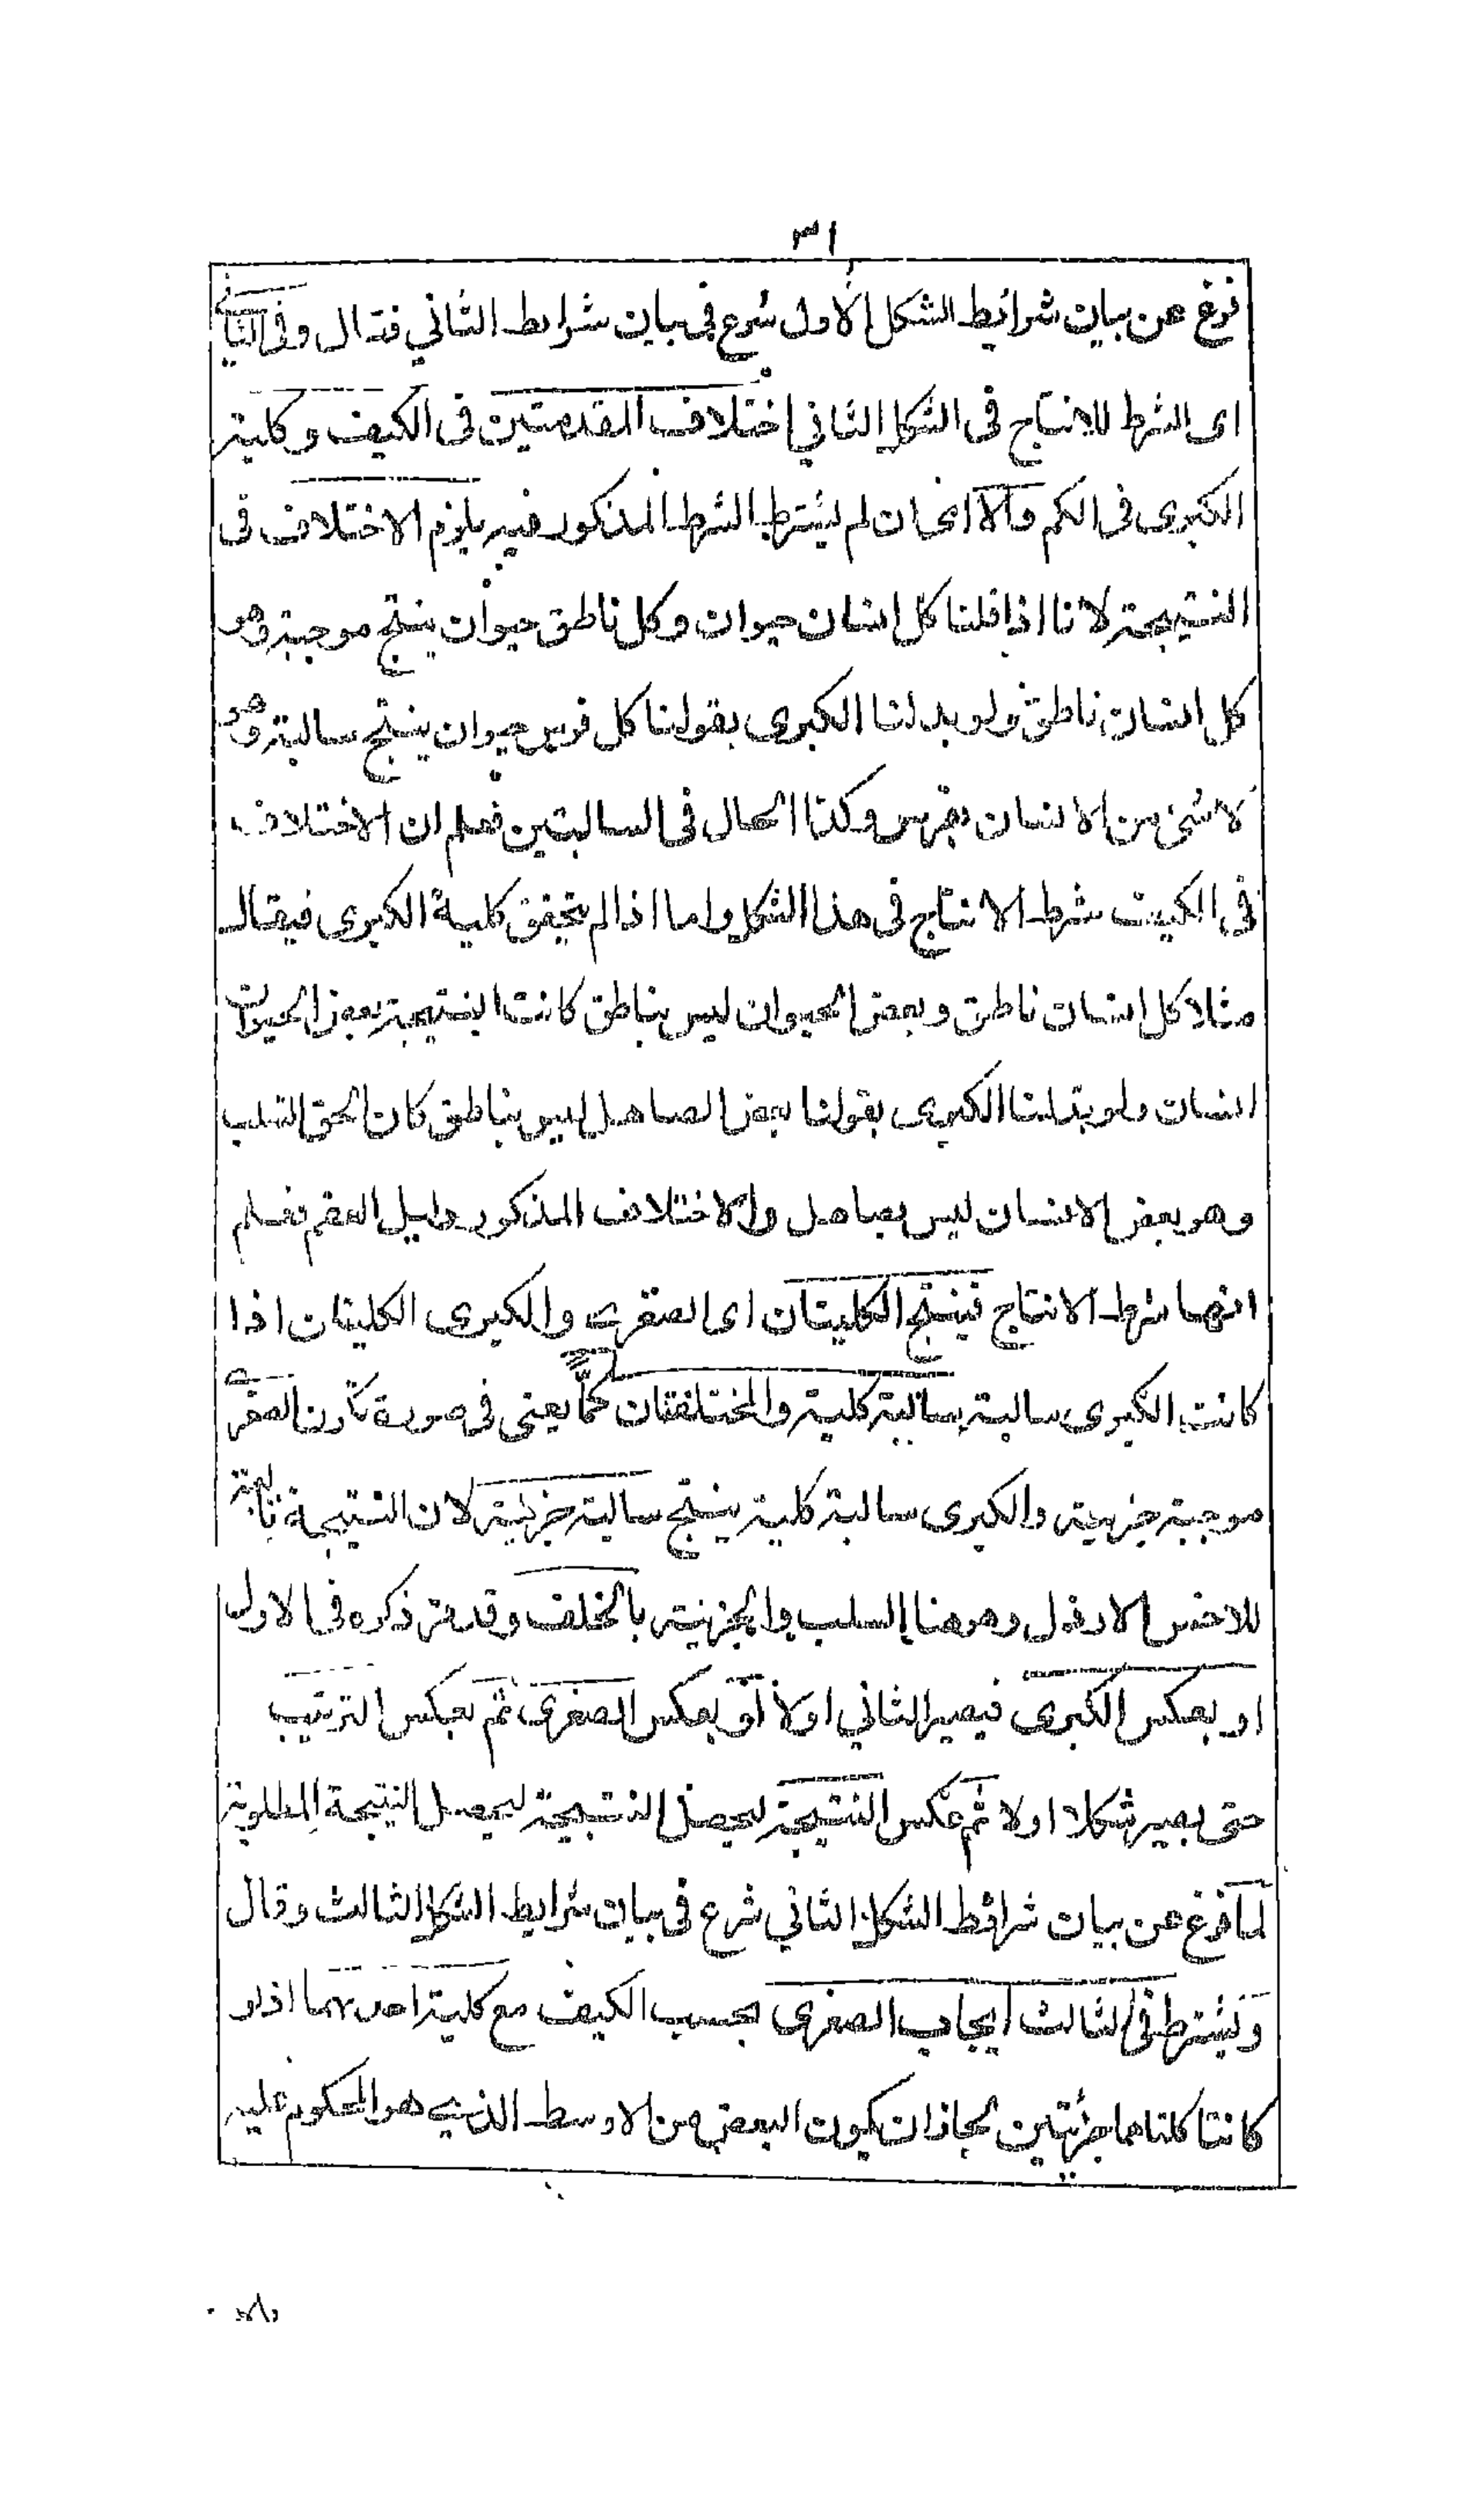 ٣١
فرغ عن بيان شرائط الشكل الاول شرع فى بيان شرايط الثاني فقال وفى الثاني
اى الشرط للانتاج فى الشكل الثاني اختلاف المقدمتين فى الكيف وكلية
الكبرى فى الكم والا اى ان لم يشترط الشرط المذكور فيه يلزم الاختلاف فى
النتيجة لانا اذا قلنا كل انسان حيوان وكل ناطق حيوان ينتج موجبة وهو
كل انسان ناطق ولو بدلنا الكبرى بقولنا كل فرس حيوان ينتج سالبة وهو
لا شئ من الانسان بفرس وكذا الحال فى السالبتين فعلم ان الاختلاف
فى الكيف شرط الانتاج فى هذا الشكل واما اذا لم يتحقق كلية الكبرى فيقال
مثلا كل انسان ناطق وبعض الحيوان ليس بناطق كانت النتيجة بعض الحيوان
انسان ولو بدلنا الكبرى بقولنا بعض الصاهل ليس بناطق كان الحق السلب
وهو بعض الانسان ليس بصاهل والاختلاف المذكور دليل العقم فعلم
انهما شرط الانتاج فينتج الكليتان اى الصغرى والكبرى الكليتان اذا
كانت الكبرى سالبة سالبة كلية والمختلفتان كما يعنى فى صورة تكون الصغرى
موجبة جزئية والكبرى سالبة كلية ينتج سالبة جزئية لان النتيجة تابعة
للاخس الارذل وهو هنا السلب والجزئية بالخلف وقد مر ذكره فى الاول
او بعكس الكبرى فيصير الثاني اولا او بعكس الصغرى ثم بعكس الترتيب
حتى يصير شكلا اولا ثم عكس النتيجة ليحصل النتيجة ليحصل النتيجة المطلوبة
لما فرغ عن بيان شرائط الشكل الثاني شرع فى بيان شرايط الشكل الثالث وقال
ويشترط فى الثالث ايجاب الصغرى بحسب الكيف مع كلية احدىهما اذ لو
كانتا كلتاهما جزئيتين لجاز ان يكون البعض من الاوسط الذى هو المحكوم عليه